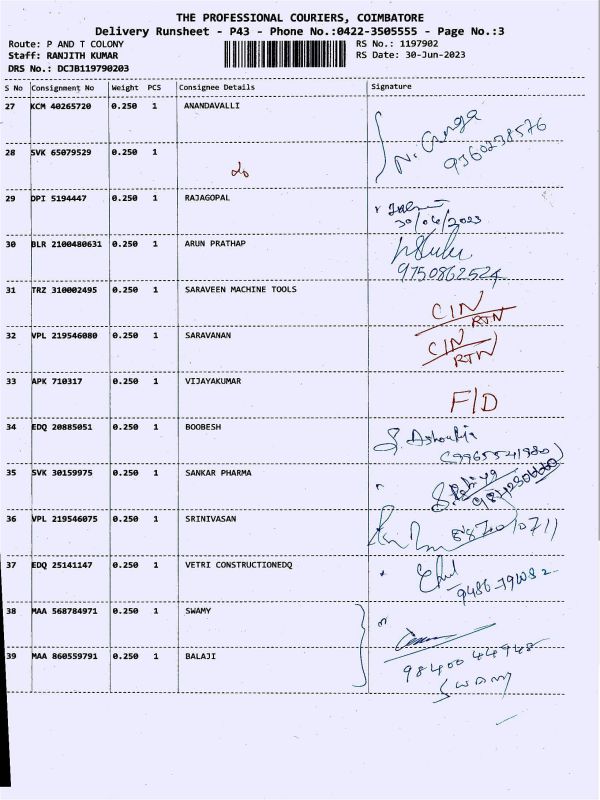 THE PROFESSIONAL COURIERS, COIMBATORE
Delivery Runsheet - P43 - Phone No.:0422-3505555 - Page No.:3
Route: P AND T COLONY RS No.: 1197902
Staff: RANJITH KUMAR RS Date: 30-Jun-2023
DRS No.: DCJB119790203
S No Consignment No Weight PCS Consignee Details Signature
27 KCM 40265720 0.250 1 ANANDAVALLI
9360238576
28 SVK 65079529 0.250 1
29 DPI 5194447 0.250 1 RAJAGOPAL
30/06/2023
30 BLR 2100480631 0.250 1 ARUN PRATHAP
9750862524
31 TRZ 310002495 0.250 1 SARAVEEN MACHINE TOOLS CIN
RTN
32 VPL 219546080 0.250 1 SARAVANAN CIN
RTN
33 APK 710317 0.250 1 VIJAYAKUMAR F/D
34 EDQ 20885051 0.250 1 BOOBESH
(9965541980)
35 SVK 30159975 0.250 1 SANKAR PHARMA
36 VPL 219546075 0.250 1 SRINIVASAN
37 EDQ 25141147 0.250 1 VETRI CONSTRUCTIONEDQ
38 MAA 568784971 0.250 1 SWAMY
39 MAA 860559791 0.250 1 BALAJI
98400 44948
SWAMY